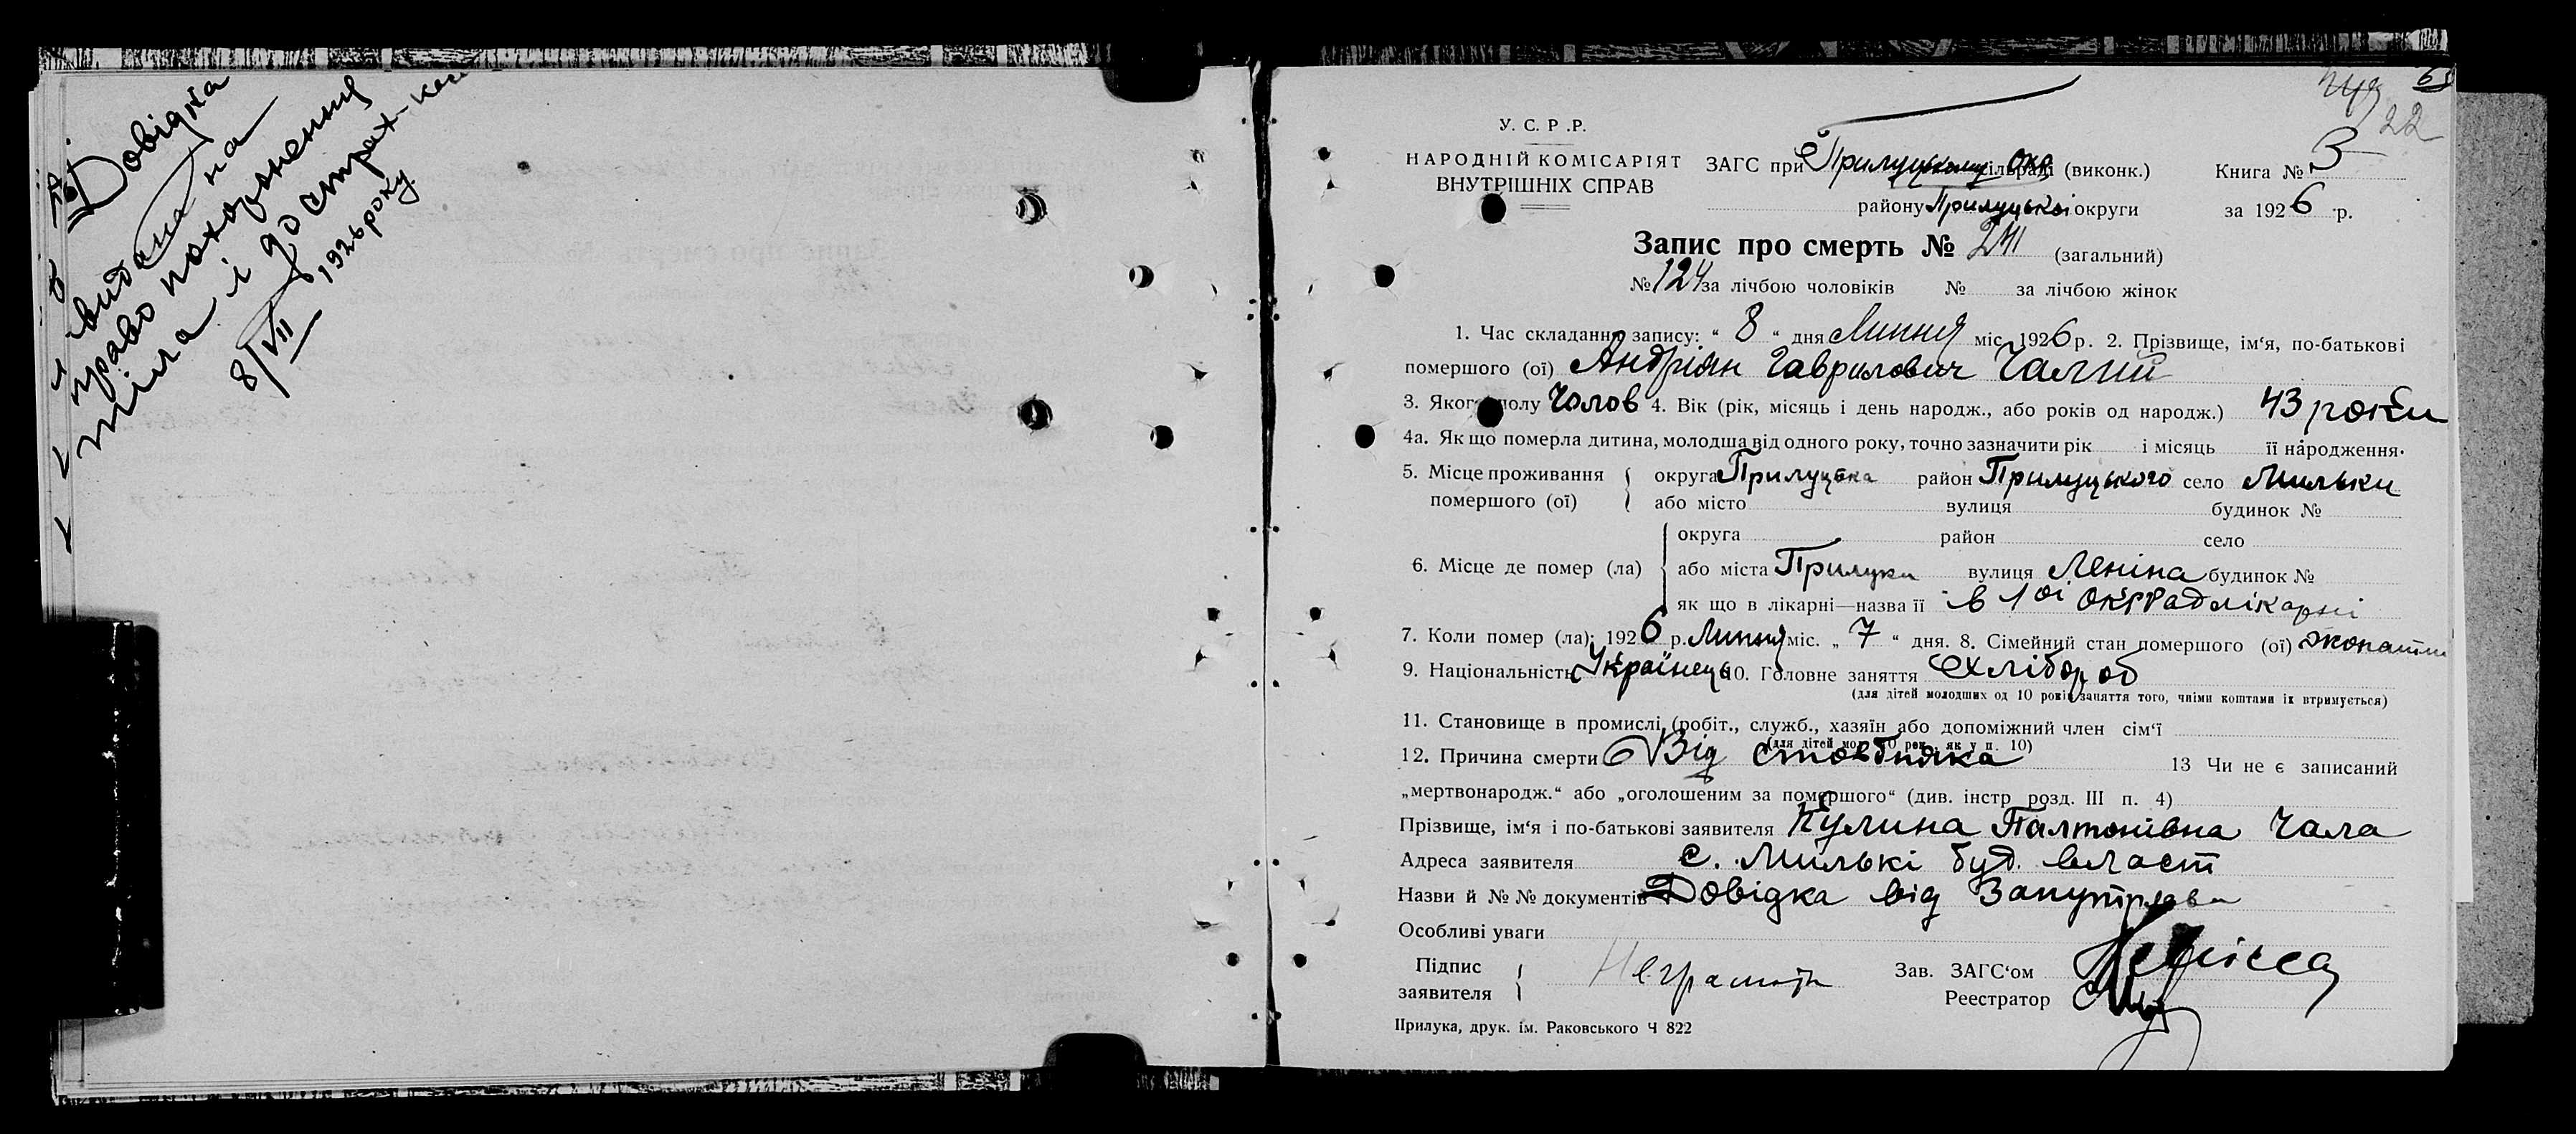 Довідка
видана на
право похоронення
тіла і до страх-кас
8/VII 1926 року
22
У. С. Р. Р.
НАРОДНІЙ КОМІСАРІЯТ
ВНУТРІШНІХ СПРАВ
ЗАГС при Прилуцькому Окр сільраді (виконк.) Книга № 3
району Прилуцької округи за 1926 р.
Запис про смерть № 241 (загальний)
№ 124 за лічбою чоловіків № за лічбою жінок
1. Час складання запису: " 8 " дня Липня міс. 1926 р. 2. Прізвище, ім'я, по-батькові
помершого (ої) Андріян Гаврилович Чалий
3. Якого полу Чолов 4. Вік (рік, місяць і день народж., або років од народж.) 43 роки
4а. Як що померла дитина, молодша від одного року, точно зазначити рік і місяць її народження.
5. Місце проживання помершого (ої) округа Прилуцька район Прилуцького село Мильки
або місто вулиця будинок №
округа район село
6. Місце де помер (ла) або міста Прилуки вулиця Леніна будинок №
як що в лікарні—назва її в 1ої Окррадлікарні
7. Коли помер (ла): 1926 р. Липня міс. „ 7 " дня. 8. Сімейний стан помершого (ої) жонатий
9. Національність Українець 10. Головне заняття Хлібороб
(для дітей молодших од 10 років заняття того, чиїми коштами їх втримується)
11. Становище в промислі (робіт., служб., хазяїн або допоміжний член сім'ї
(для дітей мол. 10 рок., як у п. 10)
12. Причина смерти Від стовбняка 13 Чи не є записаний
„мертвонародж." або „оголошеним за помершого" (див. інстр розд. III п. 4)
Прізвище, ім'я і по-батькові заявителя Кулина Палтонівна Чала
Адреса заявителя с. Милькі буд. власт
Назви й № № документів Довідка від
Особливі уваги
Підпис заявителя Неграмотн Зав. ЗАГС'ом
Реестратор
Прилука, друк. ім. Раковського Ч 822